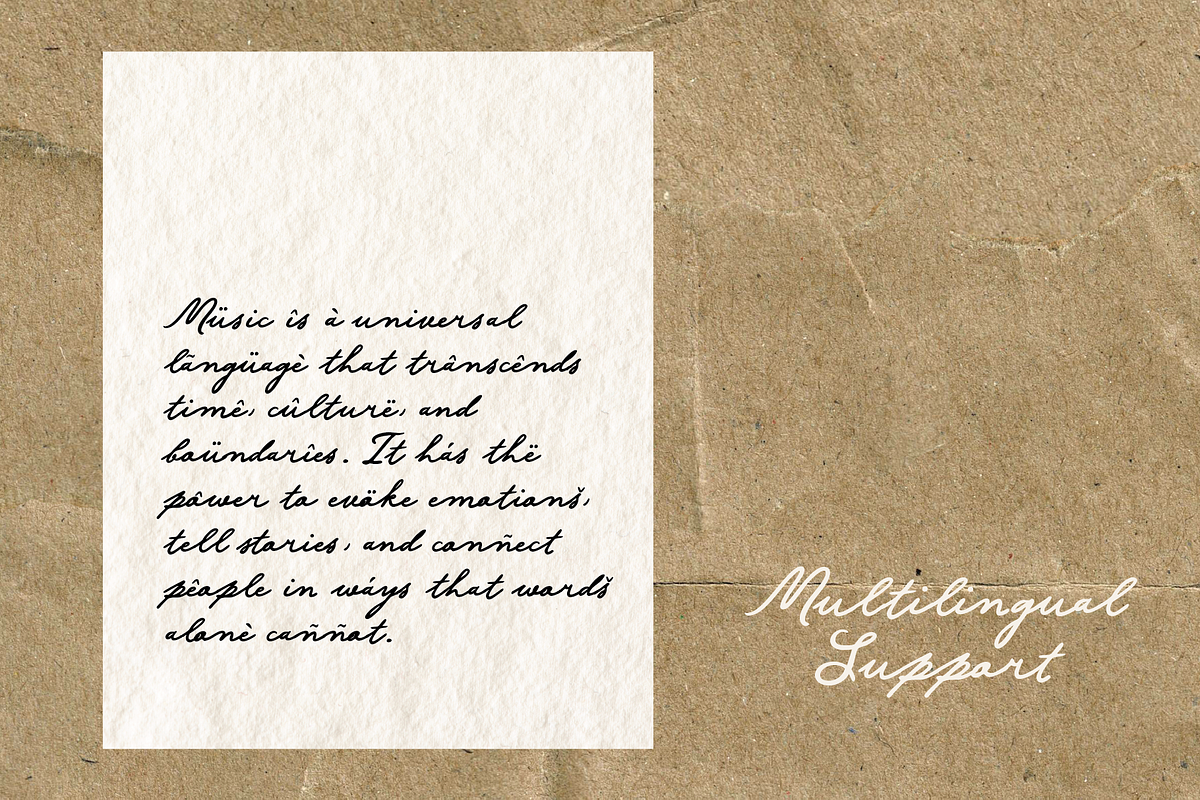 Müsic îs à universal
lãngüagè that trânscênds
timê, cûlturë, and
boündarîes. It hás thë
pôwer to evöke emotionš,
tell stories, and conñect
pêople in wáys that wordš
alonè caññot.
Multilingual
Support